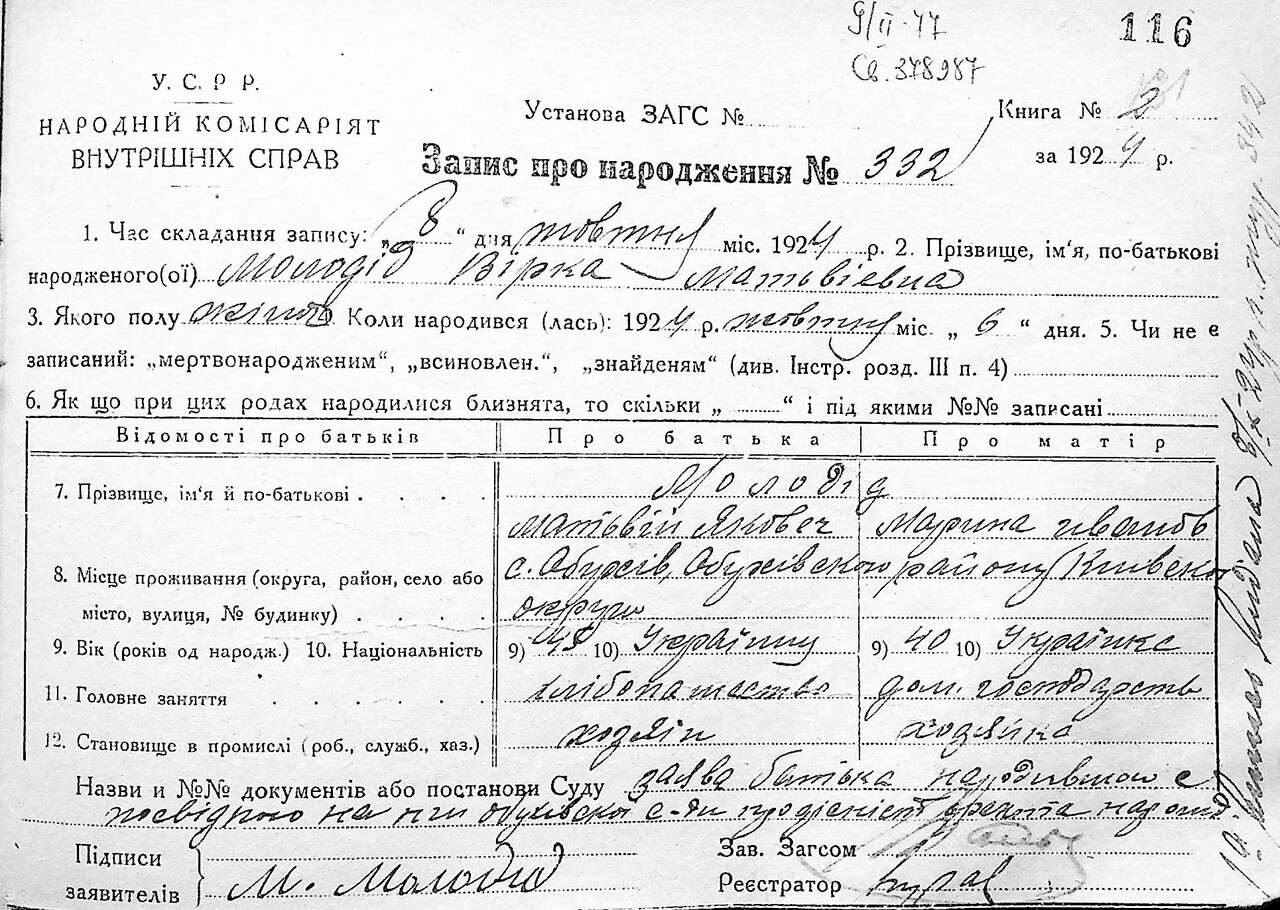 9/II-77
116
Св. 378987
У. С. Р. Р.
НАРОДНІЙ КОМІСАРІЯТ
ВНУТРІШНІХ СПРАВ
Установа ЗАГС №
Книга № 2
Запис про народження № 332
за 1924 р.
1. Час складання запису: „8“ дня жовтня міс. 1924 р. 2. Прізвище, ім‘я, по-батькові
народженого(ої) Молодід Вірка Матьвіевна
3. Якого полу жіноч Коли народився (лась): 1924 р. жовтня міс. „ 6 “ дня. 5. Чи не є
записаний: „мертвонародженим“, „всиновлен.“, „знайденям“ (див. Інстр. розд. III п. 4)
6. Як що при цих родах народилися близнята, то скільки „ “ і під якими №№ записані
Відомості про батьків Про батька Про матір
7. Прізвище, ім'я й по-батькові Молодід
Матьвій Якович Марина Івановь
8. Місце проживання (округа, район, село або с. Обухів, Обухівского району Київско
місто, вулиця, № будинку) округи
9. Вік (років од народж.) 10. Національність 9) 45 10) Українец 9) 40 10) Українка
11. Головне заняття хлібопашество дом. господарсть
12. Становище в промислі (роб., служб., хаз.) хозяін хозяйка
Назви и №№ документів або постанови Суду заява батька
Підписи
заявителів М. Молодід
Зав. Загсом
Реєстратор